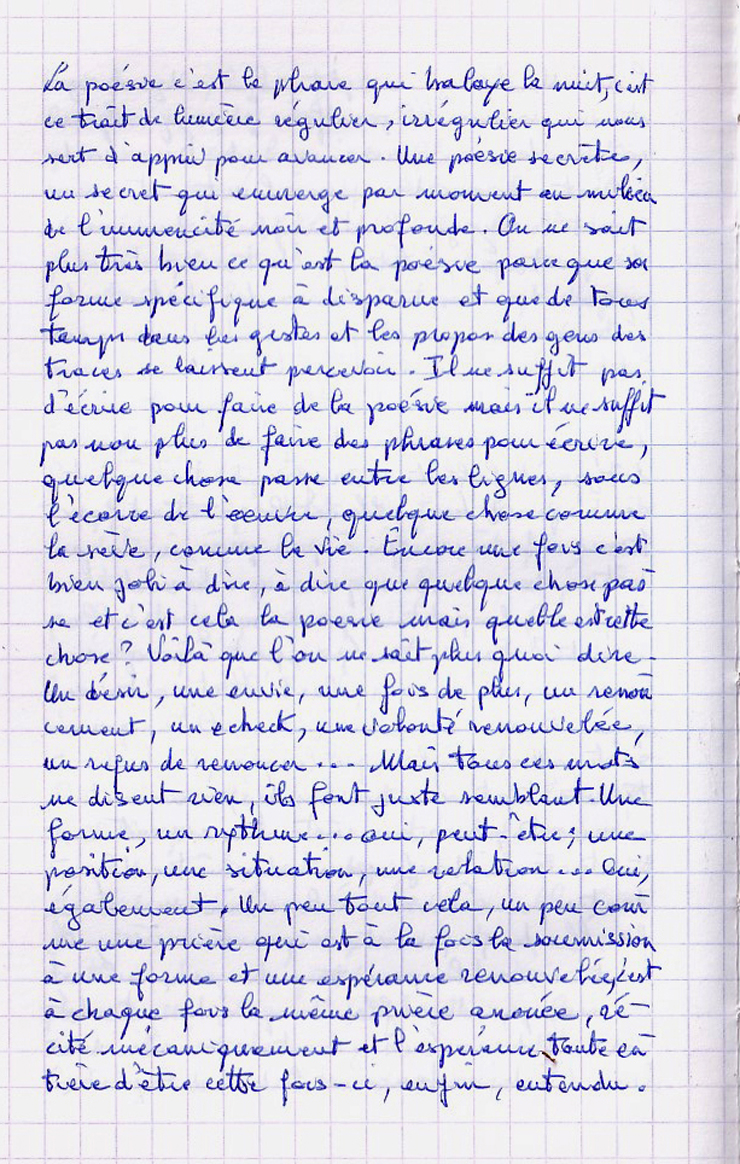 La poésie c'est le phare qui balaye la nuit, c'est
ce trait de lumière régulier, irrégulier qui nous
sert d'appui pour avancer. Une poésie secrète,
un secret qui émerge par moment au milieu
de l'immencité noir et profonde. On ne sait
plus très bien ce qu'est la poésie parce que sa
forme spécifique à disparue et que de tous
temps dans les gestes et les propos des gens des
traces se laissent percevoir. Il ne suffit pas
d'écrire pour faire de la poésie mais il ne suffit
pas non plus de faire des phrases pour écrire,
quelque chose passe entre les lignes, sous
l'écorce de l'oeuvre, quelque chose comme
la sève, comme la vie. Encore une fois c'est
bien joli à dire, à dire que quelque chose pas
se et c'est cela la poesie mais quelle est cette
chose? Voilà que l'on ne sait plus quoi dire.
Un désir, une envie, une fois de plus, un renon
cement, un echeck, une volonté renouvelée,
un refus de renoncer... Mais tous ces mots
ne disent rien, ils font juste semblant. Une
forme, un rythme... oui, peut-être; une
position, une situation, une relation... Oui,
également. Un peu tout cela, un peu com
me une prière qui est à la fois la soumission
à une forme et une espérance renouvelée, c'est
à chaque fois la même prière anonée, ré-
cité mécaniquement et l'espérance toute en
tière d'être cette fois-ci, enfin, entendu.